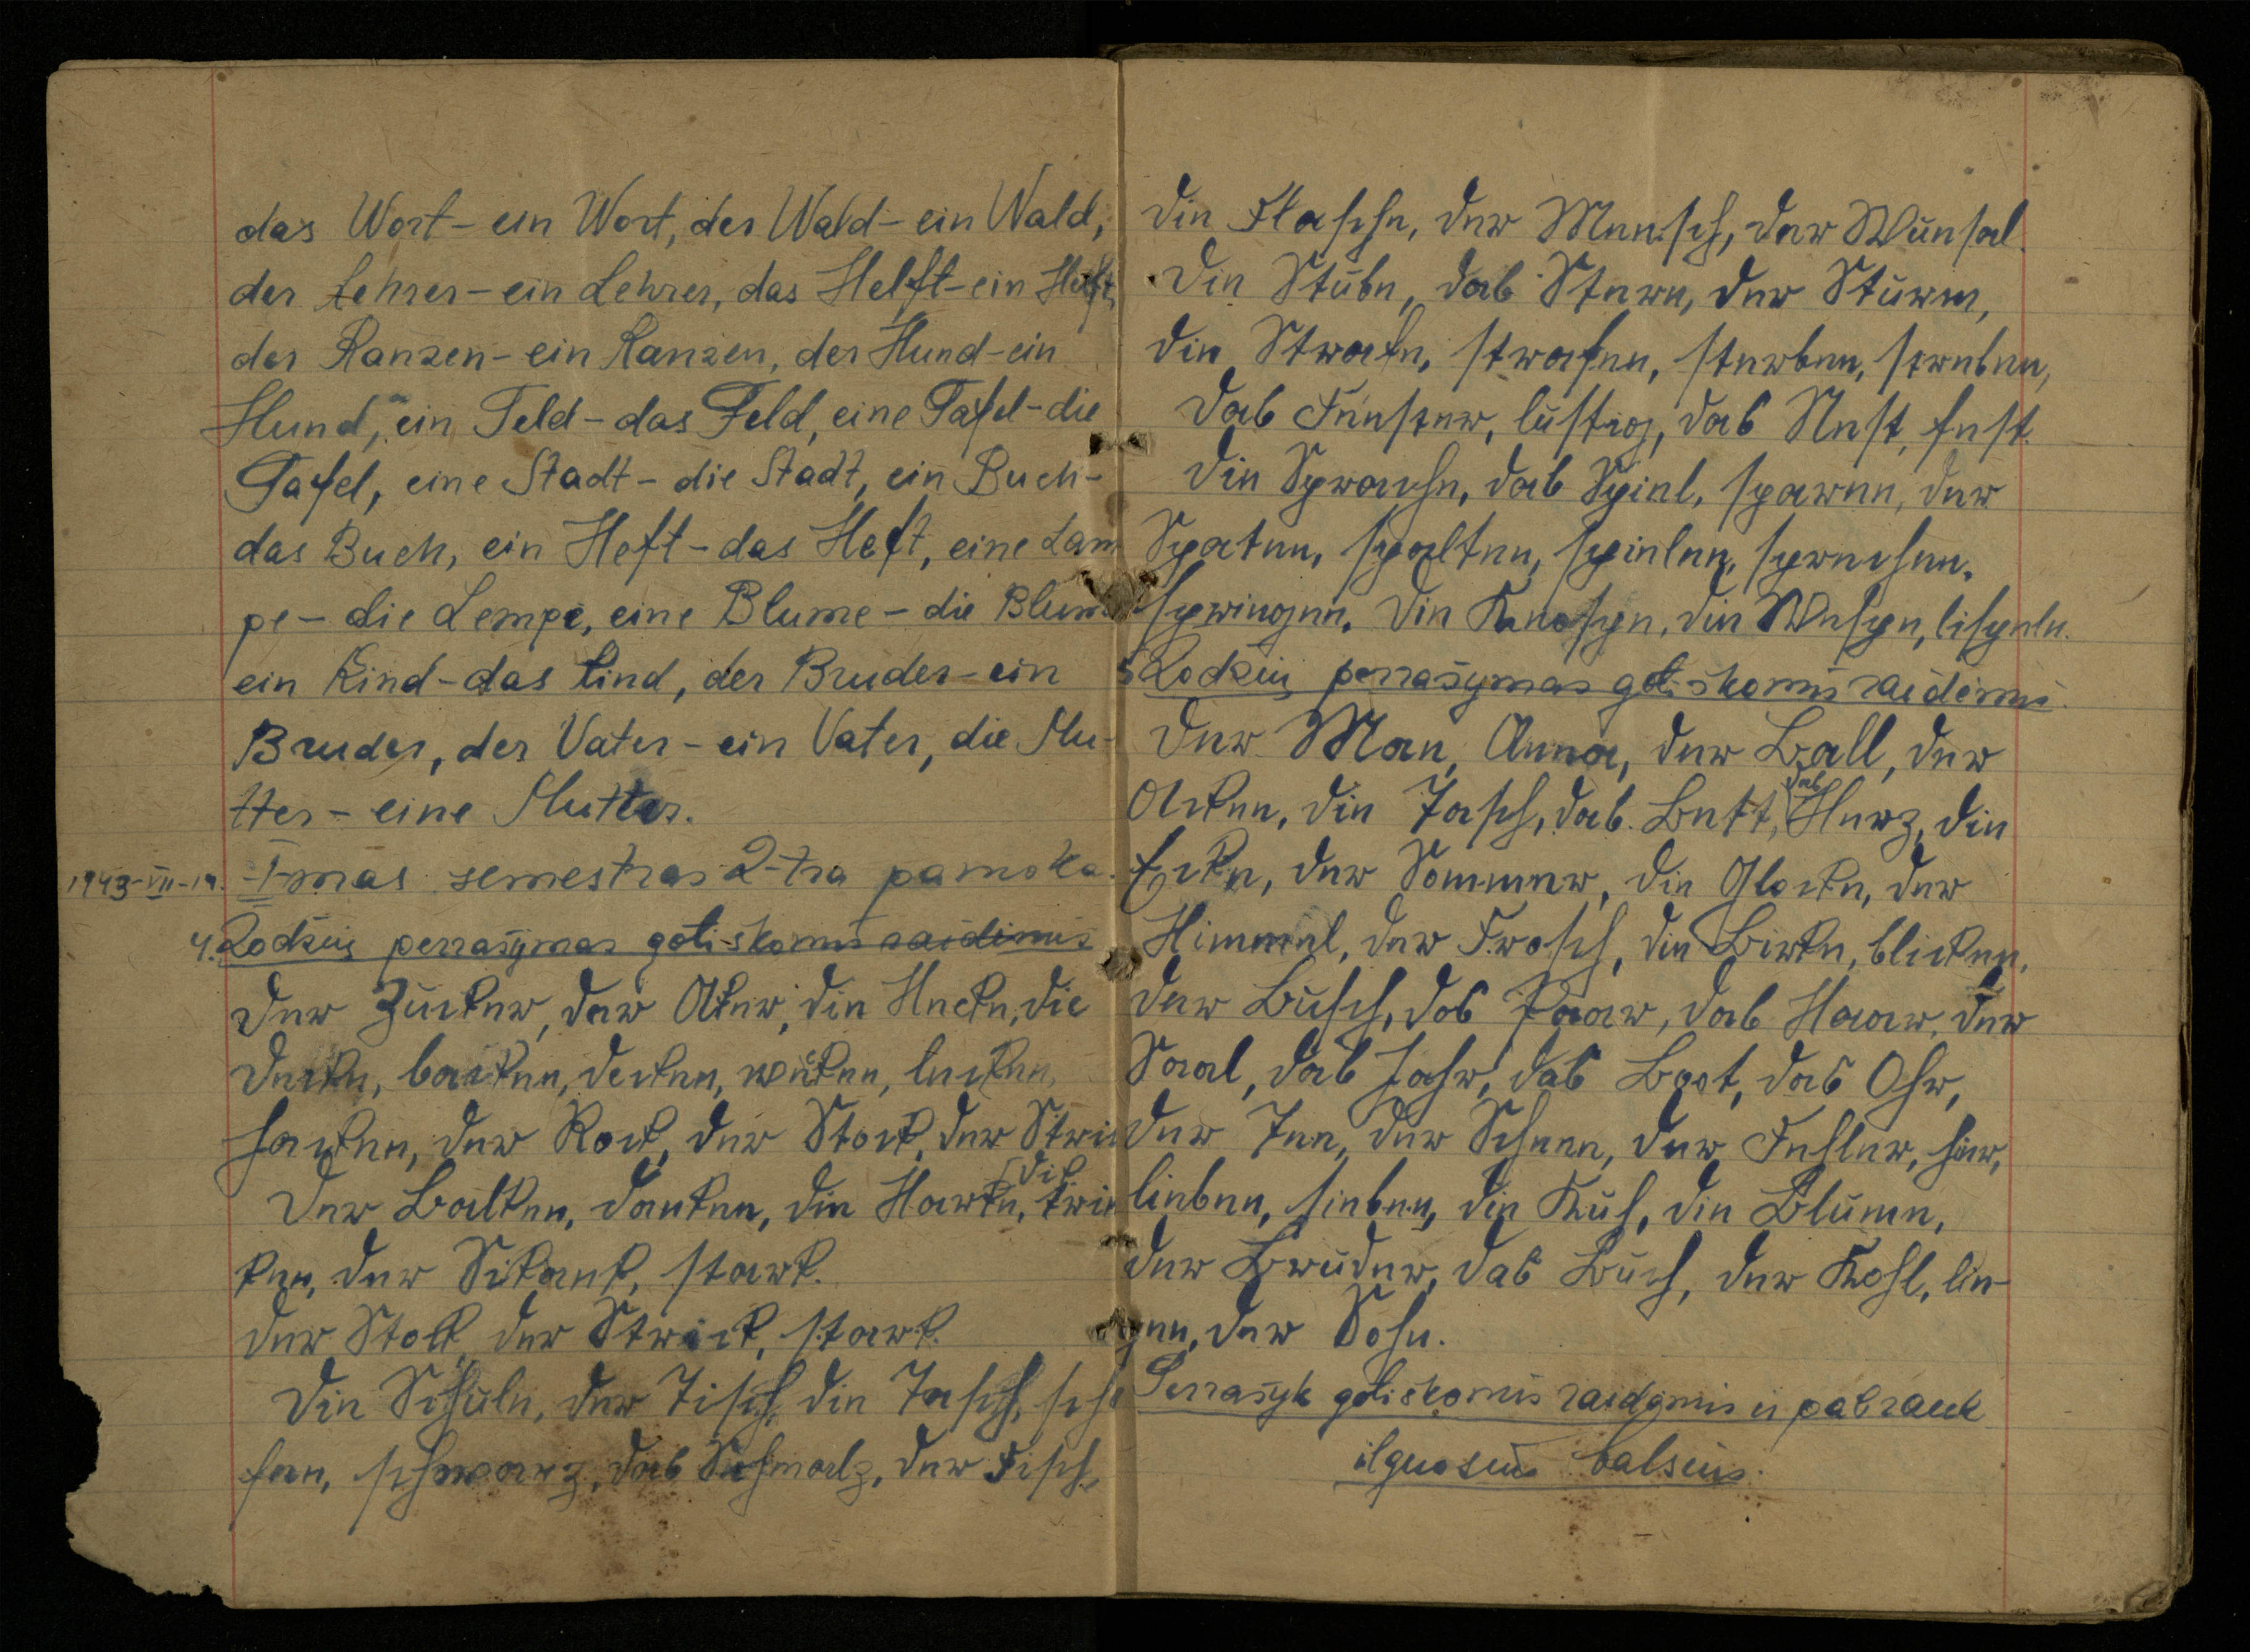 das Wort - ein Wort, der Wald - ein Wald,
der Lehrer - ein Lehrer, das Helft - ein Heft,
der Ranzen - ein Ranzen, der Hund - ein
Hund, ein Feld - das Feld, eine Tafel - die
Tafel, eine Stadt - die Stadt, ein Buch -
das Buch, ein Heft - das Heft, eine Lam
pe - die Lempe, eine Blume - die Blume
ein Kind - das Kind, der Bruder - ein
Bruder, der Vater - ein Vater, die Mu-
tter - eine Mutter.
1943-VII-19. I-mas semestras 2-tra pamoka.
4. Žodžių perrašymas gotiškomis raidėmis
der Zucker, der Aker, die Hecke, die
Decke, backen, decken, wecken, lecken,
hacken, der Rock, der Stock, der Stri
der Balken, danken, die Harke, trin
die
ken, der Sckank, stark.
der Stock, der Strick, stark.
die Schule, der Tisch, die Tasch, scha
fen, schwarz, das Schmalz, der Fisch,
die Flasche, der Mensch, der Wunsch.
die Stube, das Stern, der Sturm,
die Strafe, strafen, sterben, streben,
das Fenster, lustig, das Nest, fest.
die Sprache, das Spiel, sparen, der
Spaten, spalten, spielen, sprechen.
springen. die Knospe, die Wespe, lispeln.
5 Žodžių perrašymas gotiškomis raidėmis.
der Man, Anna, der Ball, der
Acken, die Tasch, das Bett, das Herz, die
Ecke, der Sommer, die Glocke, der
Himmel, der Frosch, die Birke, blicken,
der Busch, das Paar, das Haar, der
Saal, das Jahr, das Boot, das Ohr,
der Tee, der Schnee, der Fehler, hier,
lieben, sieben, die Kuh, die Blume,
der Bruder, das Buch, der Kohl, lie-
gen, der Sohn.
Perrašyk gotiškomis raidėmis ir pabrauk
ilguosius balsius.